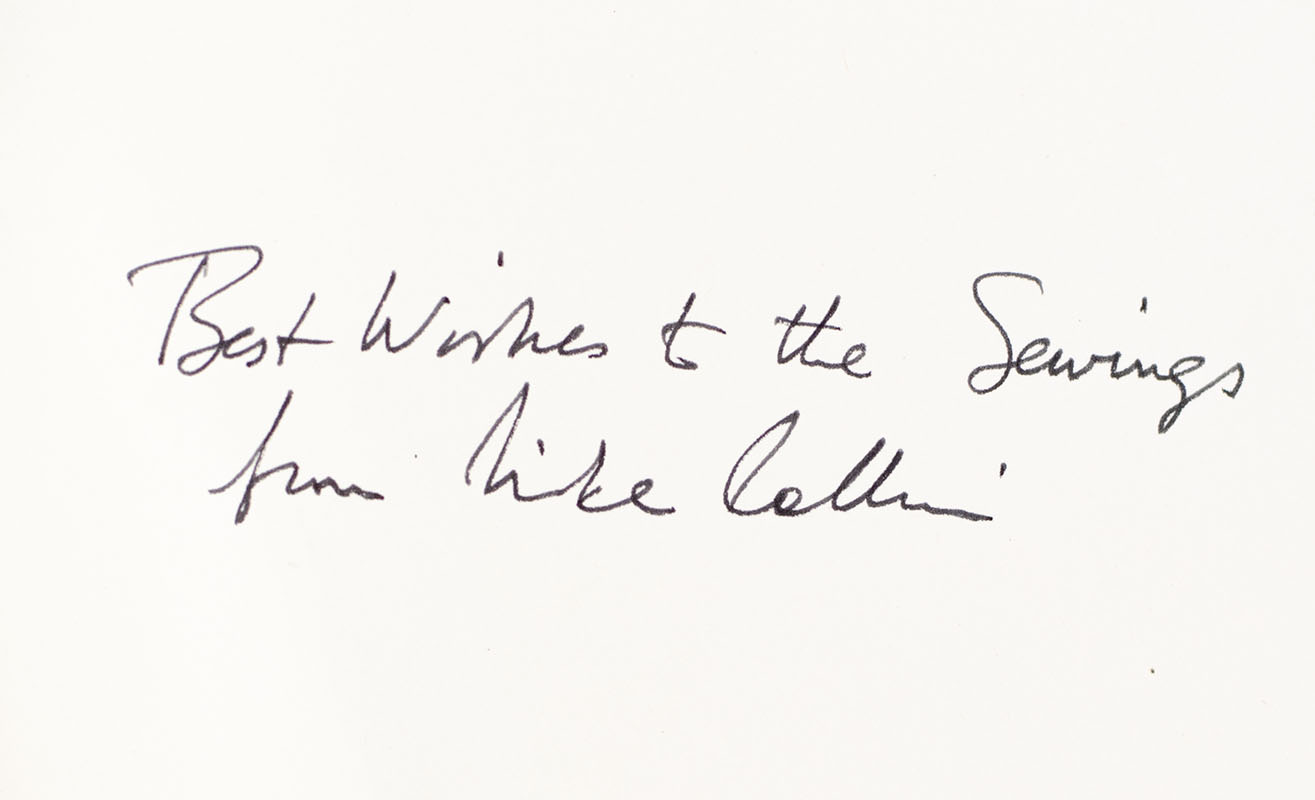 Best Wishes to the Sewings
from Mike Collins